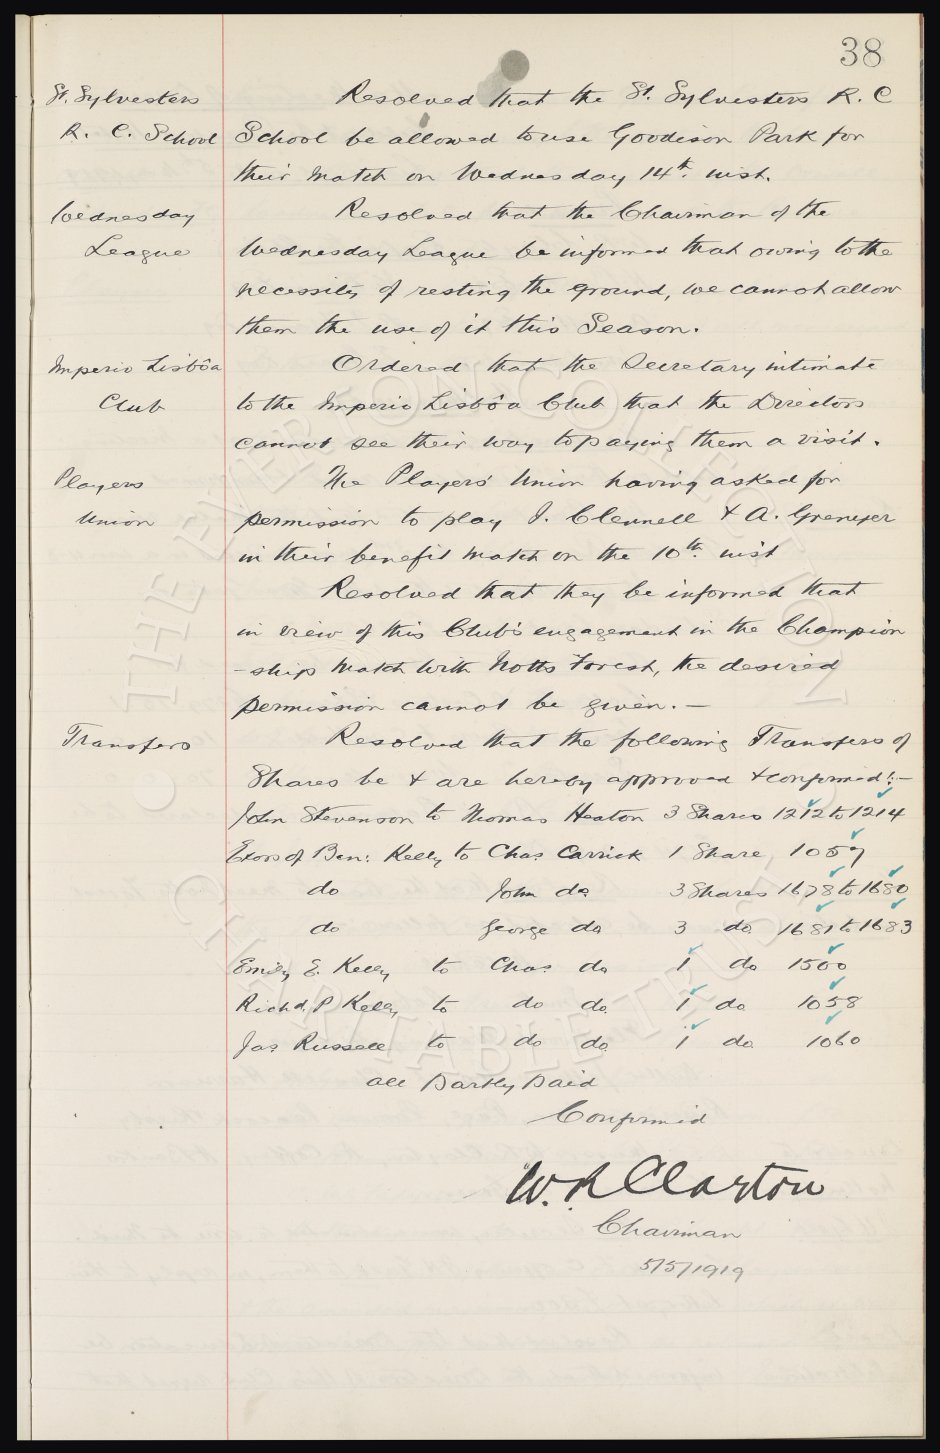 38
St. Sylvesters Resolved that the St. Sylvesters R. C
R. C. School School be allowed to use Goodison Park for
their match on Wednesday 14th. inst.
Wednesday Resolved that the Chairman of the
League Wednesday League be informed that owing to the
necessity of resting the ground, we cannot allow
them the use of it this Season.
Imperio Lisbôa Ordered that the Secretary intimate
Club to the Imperio Lisbôa Club that the Directors
cannot see their way to paying them a visit.
Players The Players' Union having asked for
Union permission to play J. Clennell & A. Grenyer
in their benefit match on the 10th. inst
Resolved that they be informed that
in view of this Club's engagement in the Champion
-ship match with Notts Forest, the desired
permission cannot be given. —
Transfers Resolved that the following Transfers of
Shares be & are hereby approved & confirmed:-
John Stevenson to Thomas Heaton 3 Shares 1212 to 1214
Exors of Ben: Kelly to Chas Carrick 1 Share 1059
do John do 3 Shares 1678 to 1680
do George do 3 do 1681 to 1683
Emily E. Kelly to Chas do 1 do 1500
Richd. P Kelly to do do 1 do 1058
Jas Russell to do do 1 do 1060
all Partly Paid
Confirmed
W. R Clayton
Chairman
5/5/1919
THE EVERTON COLLECTION
CHARITABLE TRUST
©